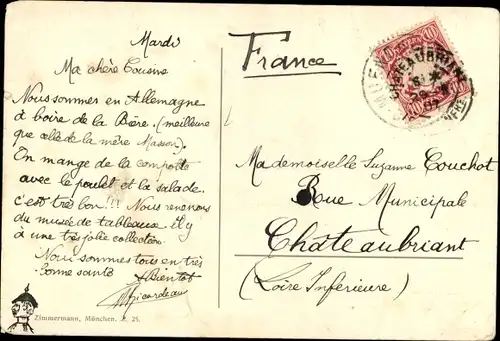 Mardi
Ma chère Cousine
Nous sommes en Allemagne
à boire de la Bière. (meilleure
que celle de la mère Masson).
On mange de la compote
avec le poulet et la salade.
c'est très bon!!! Nous revenons
du musée de tableaux il y
à une très jolie collection
Nous sommes tous en très
bonne santé
A Bientot
France
BAYERN
10 10
CHATEAUBRIANT
Mademoiselle Suzanne Couchot
Rue Municipale
Châteaubriant
(Loire Inférieure)
Zimmermann, München. 25.